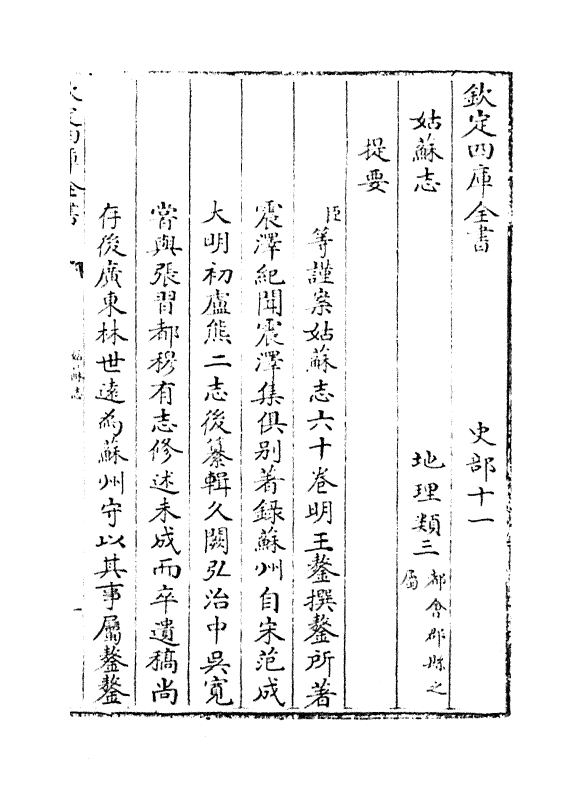 欽定四庫全書　史部十一
姑蘇志　地理類三都會郡縣之屬
提要
臣等謹案姑蘇志六十卷明王鏊撰鏊所著
震澤紀聞震澤集俱别著録蘇州自宋范成
大明初盧熊二志後纂輯久闕弘治中吳寛
嘗與張習都穆有志修述未成而卒遺稿尚
存後廣東林世遠為蘇州守以其事屬鏊鏊
欽定四庫全書
姑蘇志
一